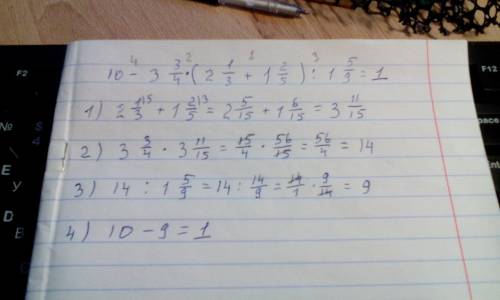 10 - 3 3/4 · (2 1/3 + 1 2/5) : 1 5/9 = 1
1) 2 1/3 + 1 2/5 = 2 5/15 + 1 6/15 = 3 11/15
2) 3 3/4 · 3 11/15 = 15/4 · 56/15 = 56/4 = 14
3) 14 : 1 5/9 = 14 : 14/9 = 14/1 · 9/14 = 9
4) 10 - 9 = 1
F2
№
E
У
D
В
F12